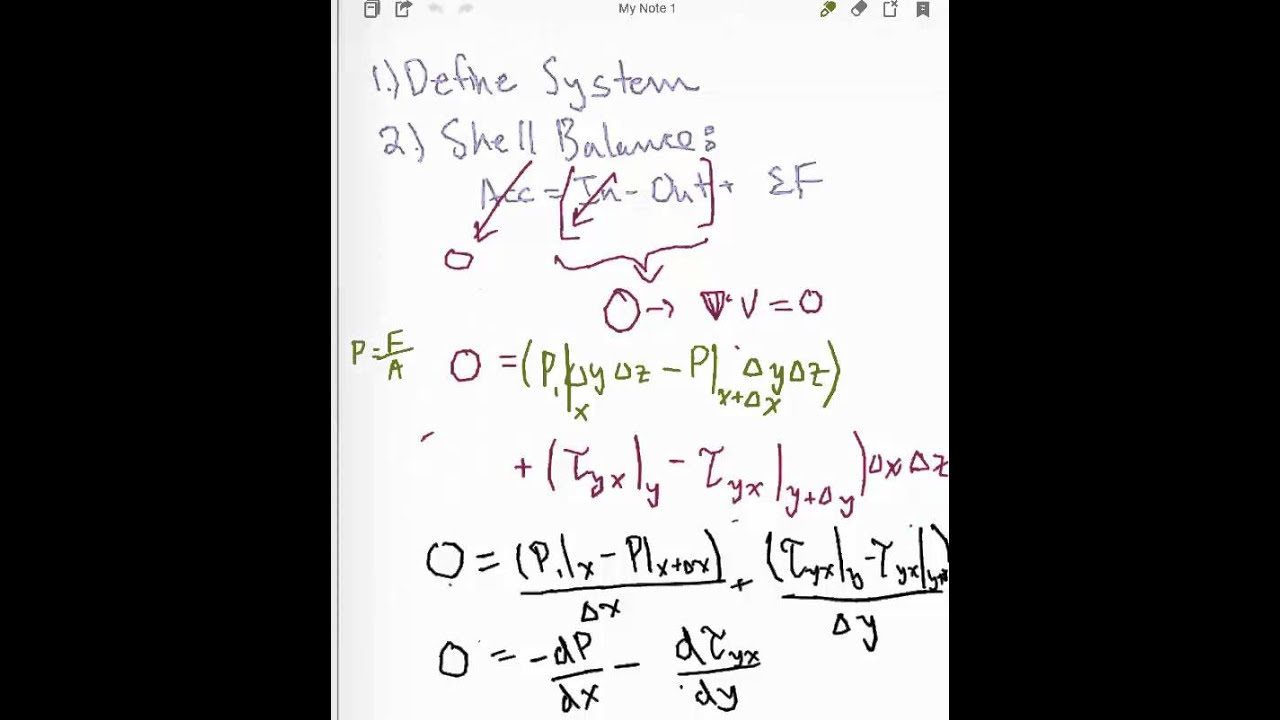 My Note 1
1.) Define System
2.) Shell Balance:
Acc = [In - Out] + ΣF
0
0 → ∇·V = 0
P = F/A
0 = (P₁|x Δy Δz - P|x+Δx Δy Δz)
+ (τyx|y - τyx|y+Δy) Δx Δz
0 = (P₁|x - P|x+Δx)/Δx + (τyx|y - τyx|y+
Δy
0 = -dP/dx - dτyx/dy